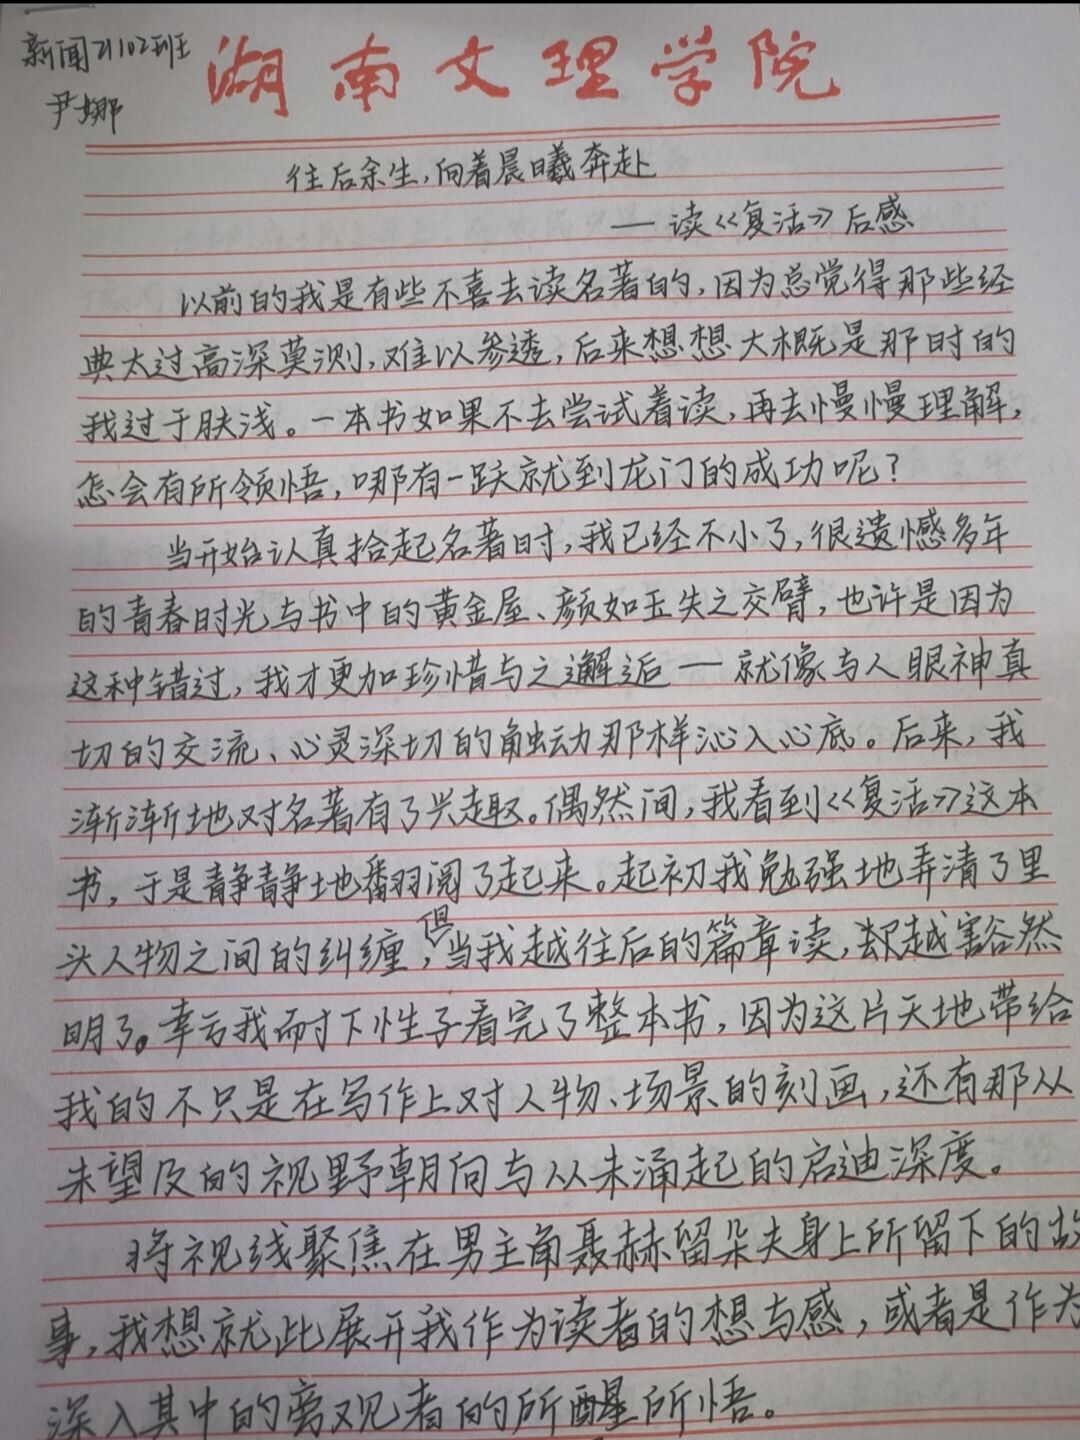 新闻21102班
尹娜
湖南文理学院
往后余生,向着晨曦奔赴
—读《复活》后感
以前的我是有些不喜去读名著的,因为总觉得那些经
典太过高深莫测,难以参透,后来想想大概是那时的
我过于肤浅。一本书如果不去尝试着读,再去慢慢理解,
怎会有所领悟,哪有一跃就到龙门的成功呢?
当开始认真拾起名著时,我已经不小了,很遗憾多年
的青春时光与书中的黄金屋、颜如玉失之交臂,也许是因为
这种错过,我才更加珍惜与之邂逅—就像与人眼神真
切的交流、心灵深切的触动那样沁入心底。后来,我
渐渐地对名著有了兴趣。偶然间,我看到《复活》这本
书,于是静静地翻阅了起来。起初我勉强地弄清了里
头人物之间的纠缠,但当我越往后的篇章读,却越豁然
明了。幸亏我耐下性子看完了整本书,因为这片天地带给
我的不只是在写作上对人物、场景的刻画,还有那从
未望及的视野朝向与从未涌起的启迪深度。
将视线聚焦在男主角聂赫留朵夫身上所留下的故
事,我想就此展开我作为读者的想与感,或者是作为
深入其中的旁观者的所醒所悟。